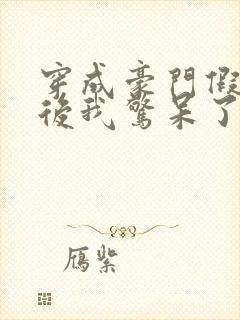 穿成豪門假
後我驚呆了
鴈紫